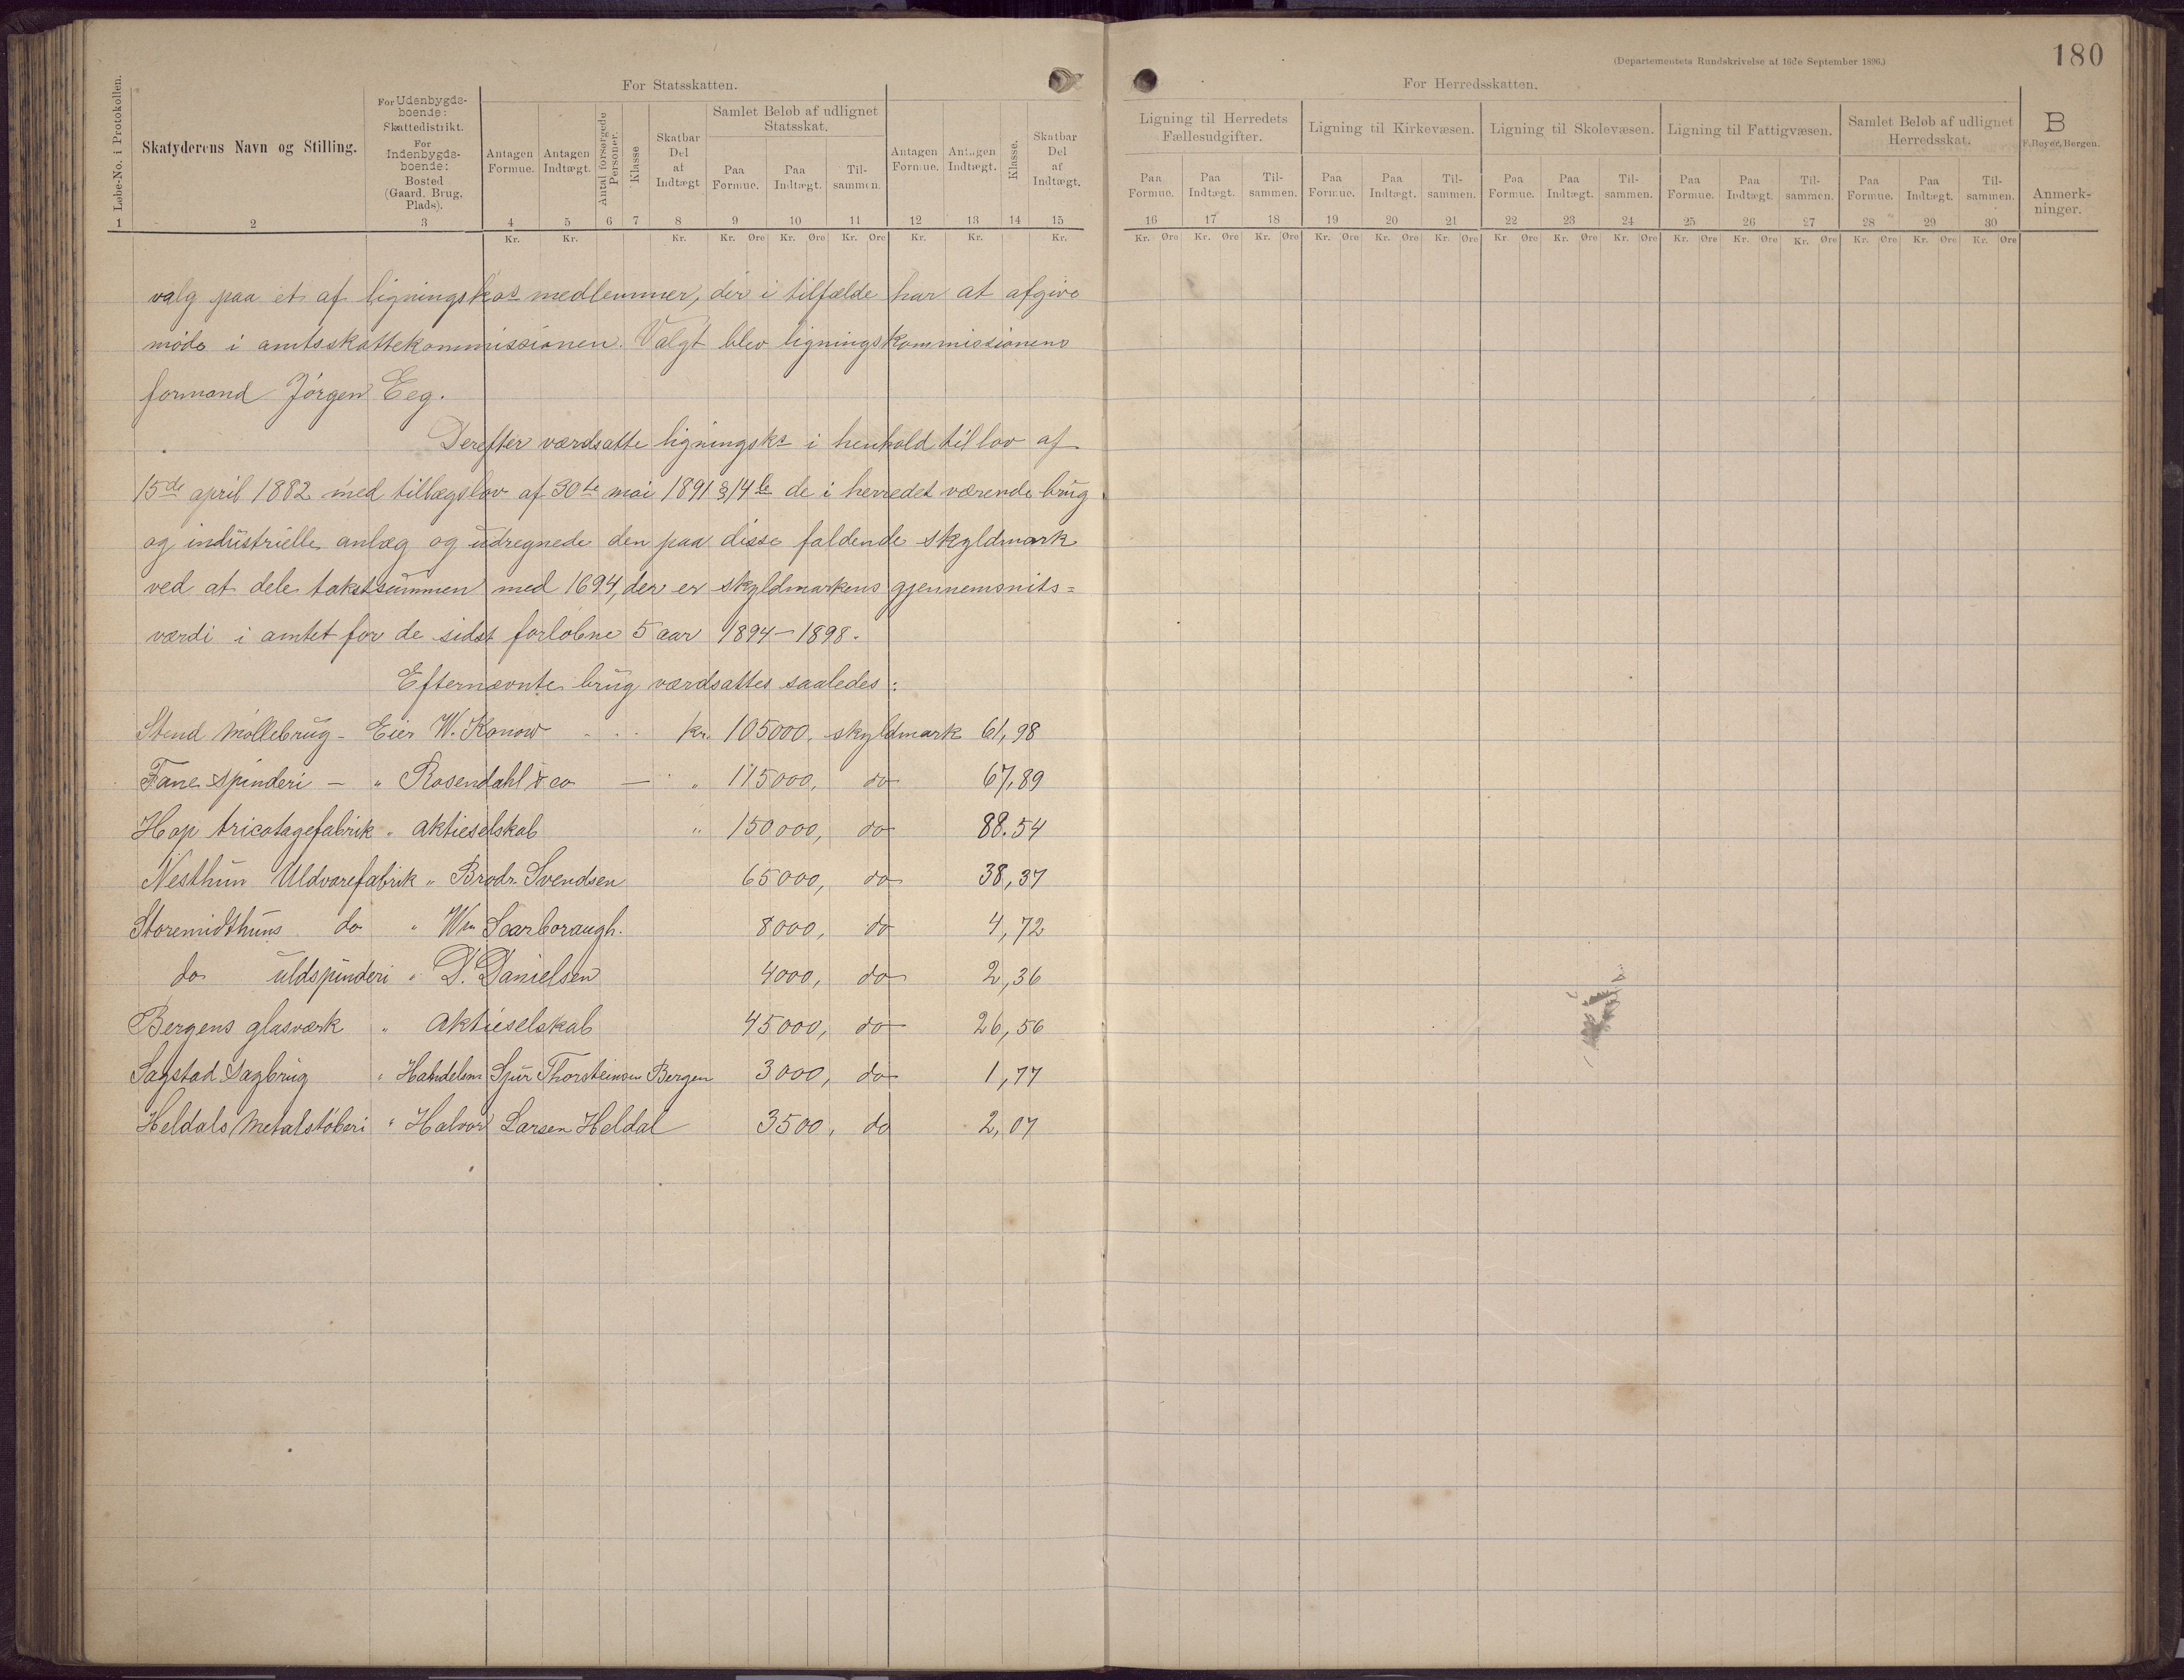 180
(Departementets Rundskrivelse af 16de September 1896.)
For Statsskatten.
For Herredsskatten.
Løbe-No. i Protokollen.
Skatyderens Navn og Stilling.
For Udenbygds-
boende:
Skattedistrikt.
For
Indenbygds-
boende:
Bosted
(Gaard, Brug,
Plads).
Antagen
Formue.
Antagen
Indtægt.
Antal forsørgede
Personer.
Klasse
Skatbar
Del
af
Indtægt
Samlet Beløb af udlignet
Statsskat.
Paa
Formue.
Paa
Indtægt.
Til-
sammen.
Antagen
Formue.
Antagen
Indtægt.
Klasse.
Skatbar
Del
af
Indtægt.
Ligning til Herredets
Fællesudgifter.
Paa
Formue.
Paa
Indtægt.
Til-
sammen.
Ligning til Kirkevæsen.
Paa
Formue.
Paa
Indtægt.
Til-
sammen.
Ligning til Skolevæsen.
Paa
Formue.
Paa
Indtægt.
Til-
sammen.
Ligning til Fattigvæsen.
Paa
Formue.
Paa
Indtægt.
Til-
sammen.
Samlet Beløb af udlignet
Herredsskat.
Paa
Formue.
Paa
Indtægt.
Til-
sammen.
B
F. Beyer, Bergen.
Anmerk-
ninger.
1 2 3 4 5 6 7 8 9 10 11 12 13 14 15 16 17 18 19 20 21 22 23 24 25 26 27 28 29 30
Kr. Kr. Kr. Kr. Øre Kr. Øre Kr. Øre Kr. Kr. Kr. Kr. Øre Kr. Øre Kr. Øre Kr. Øre Kr. Øre Kr. Øre Kr. Øre Kr. Øre Kr. Øre Kr. Øre Kr. Øre Kr. Øre Kr. Øre Kr. Øre Kr. Øre
valg paa et af ligningskos medlemmer, der i tilfælde har at afgive
møde i amtsskattekommissionen. Valgt blev ligningskommissionens
formand Jørgen Eeg.
Derefter værdsatte ligningsko i henhold til lov af
15de april 1882 med tillægslov af 30te mai 1891 § 14 b de i herredet værende brug
og industrielle anlæg og udregnede den paa disse faldende skyldmark
ved at dele takstsummen med 1694, der er skyldmarkens gjennemsnits=
værdi i amtet for de sidst forløbne 5 aar 1894-1898.
Efternævnte brug værdsattes saaledes:
Stend Møllebrug - Eier W. Konow . . . kr. 105000, skyldmark 61,98
Fane Spinderi - " Rosendahl & co - " 115000, do 67,89
Hop tricotagefabrik " aktieselskab " 150000, do 88.54
Nesthun Uldvarefabrik " Brødr. Svendsen 65000, do 38,37
Storemidthuns do " Wm Scarboraugh. 8000, do 4,72
do uldspinderi " D. Danielsen 4000, do 2,36
Bergens glasværk " aktieselskab 45000, do 26,56
Sagstad Sagbrug " Handelsm Sjur Thorsteinsen Bergen 3000, do 1,77
Heldals Metalstøberi " Halvor Larsen Heldal 3500, do 2,07